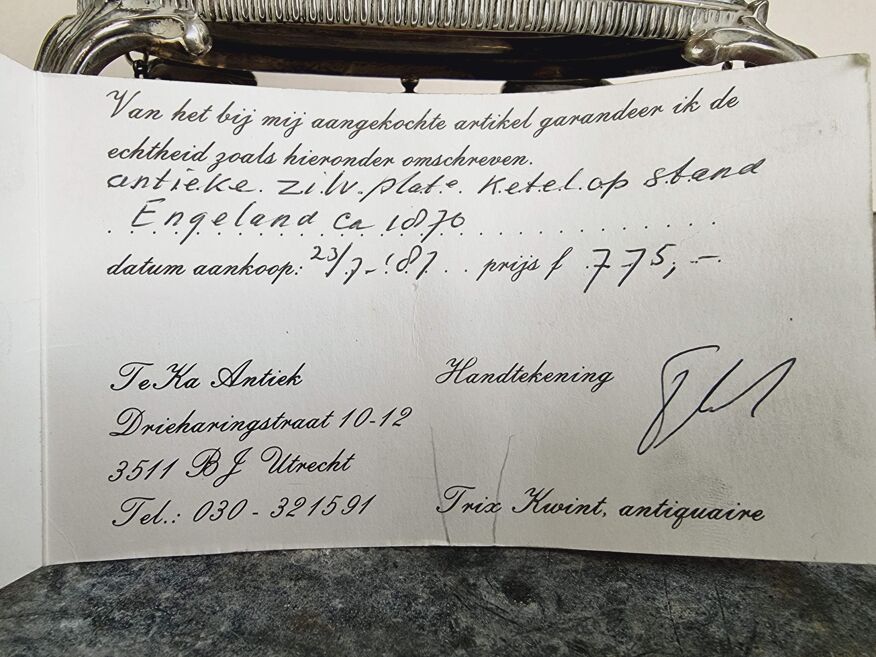 Van het bij mij aangekochte artikel garandeer ik de
echtheid zoals hieronder omschreven.
antieke zilv. plate ketel op stand
Engeland ca 1870
datum aankoop: 23/7-'87 prijs f 775,-
TeKa Antiek
Drieharingstraat 10-12
3511 BJ Utrecht
Tel.: 030 - 321591
Handtekening
Trix Kwint, antiquaire